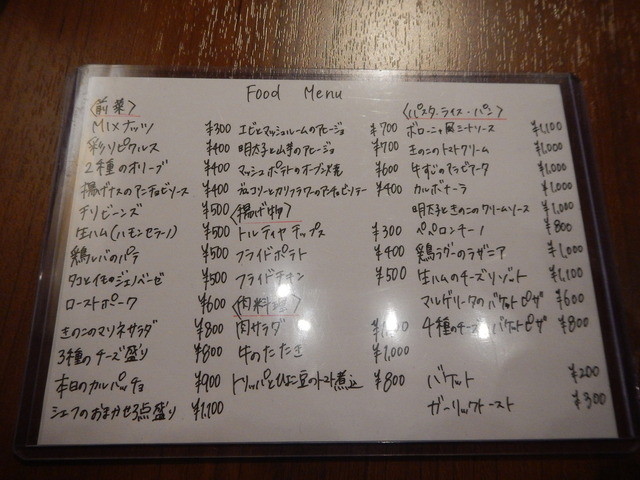 Food Menu
〈前菜〉
MIXナッツ ¥300
彩りピクルス ¥400
2種のオリーブ ¥400
揚げナスのアンチョビソース ¥400
チリビーンズ ¥500
生ハム(ハモンセラーノ) ¥500
鶏レバのパテ ¥500
タコとイモのジェノベーゼ ¥500
ローストポーク ¥600
きのこのマリネサラダ ¥800
3種のチーズ盛り ¥800
本日のカルパッチョ ¥900
シェフのおまかせ3点盛り ¥1,100
エビとマッシュルームのアヒージョ ¥700
明太子と山芋のアヒージョ ¥700
マッシュポテトのオーブン焼 ¥600
ブロッコリーとカリフラワーのアンチョビソテー ¥400
〈揚げ物〉
トルティヤチップス ¥300
フライドポテト ¥400
フライドチキン ¥500
〈肉料理〉
肉サラダ
牛のたたき ¥1,000
トリッパとひよこ豆のトマト煮込 ¥800
〈パスタ・ライス・パン〉
ボローニャ風ミートソース ¥1,100
きのこのトマトクリーム ¥1,000
牛すじのアラビアータ ¥1,000
カルボナーラ ¥1,000
明太子ときのこのクリームソース ¥1,000
ペペロンチーノ ¥800
鶏ラグーのラザニア ¥1,000
生ハムのチーズリゾット ¥1,100
マルゲリータのバケットピザ ¥600
4種のチーズのバケットピザ ¥800
バゲット ¥200
ガーリックトースト ¥300